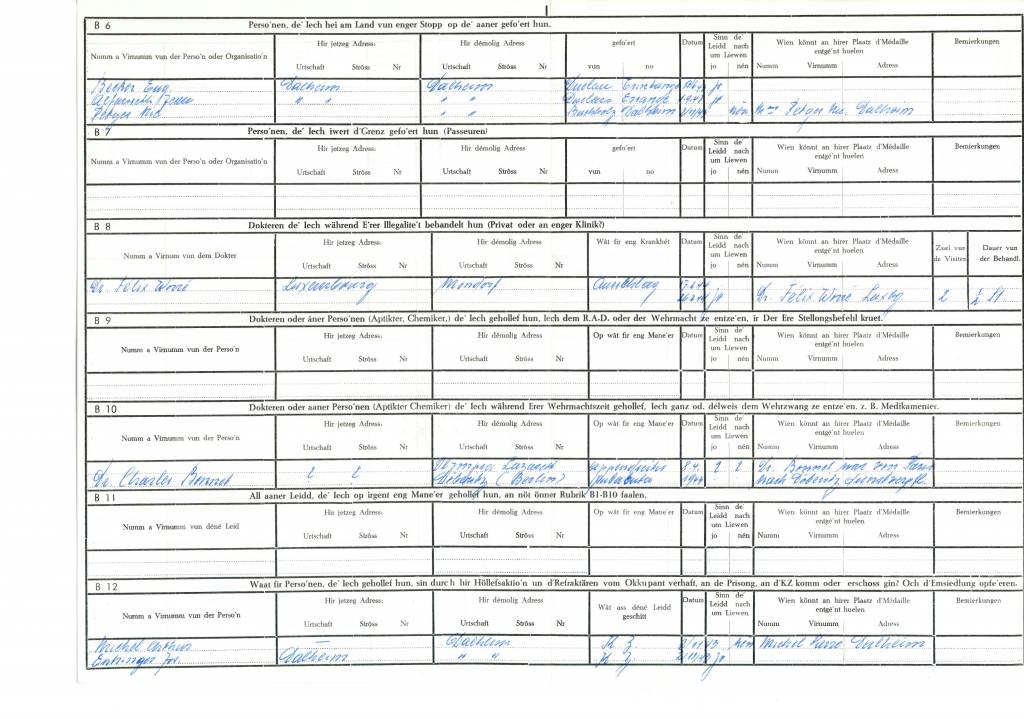 B 6 Perso'nen, de' Iech hei am Land vun enger Stopp op de' aaner gefo'ert hun.
Numm a Virnumm vun der Perso'n oder Organisatio'n Hir jetzeg Adress: Hir démolig Adress gefo'ert Datum Sinn de' Leidd nach um Liewen Wien könnt an hirer Plaatz d'Médaille entgé'nt huelen Bemierkungen
Urtschaft Ströss Nr Urtschaft Ströss Nr vun no jo nén Numm Virnumm Adress
Becker Eug. Dalheim Dalheim jo
" " " "
" " Dalheim Nic. Dalheim
B 7 Perso'nen, de' Iech iwert d'Grenz gefo'ert hun (Passeuren)
Numm a Virnumm vun der Perso'n oder Organisatio'n Hir jetzeg Adress: Hir démolig Adress gefo'ert Datum Sinn de' Leidd nach um Liewen Wien könnt an hirer Plaatz d'Médaille entgé'nt huelen Bemierkungen
Urtschaft Ströss Nr Urtschaft Ströss Nr vun no jo nén Numm Virnumm Adress
B 8 Dokteren de' Iech während E'rer Illegalite't behandelt hun (Privat oder an enger Klinik?)
Numm a Virnum vun dem Dokter Hir jetzeg Adress: Hir démolig Adress Wât fir eng Krankhét Datum Sinn de' Leidd nach um Liewen Wien könnt an hirer Plaatz d'Médaille entgé'nt huelen Zuel vun de Visiten Dauer vun der Behandl.
Urtschaft Ströss Nr Urtschaft Ströss Nr jo nén Numm Virnumm Adress
Dr. Felix Worré Luxemburg Mondorf jo Dr. Felix Worré Luxbg 2
B 9 Dokteren oder âner Perso'nen (Aptikter, Chemiker,) de' Iech gehollef hun, Iech dem R.A.D. oder der Wehrmacht ze entze'en, ir Der Ere Stellongsbefehl kruet.
Numm a Virnumm vun der Perso'n Hir jetzeg Adress: Hir démolig Adress Op wât fir eng Mane'er Datum Sinn de' Leidd nach um Liewen Wien könnt an hirer Plaatz d'Médaille entgé'nt huelen Bemierkungen
Urtschaft Ströss Nr Urtschaft Ströss Nr jo nén Numm Virnumm Adress
B 10 Dokteren oder aaner Perso'nen (Aptikter Chemiker) de' Iech während Erer Wehrmachtszeit gehollef, Iech ganz od. délweis dem Wehrzwang ze entze'en. z. B. Medikamenter.
Numm a Virnumm vun der Perso'n Hir jetzeg Adress: Hir démolig Adress Op wât fir eng Mane'er Datum Sinn de' Leidd nach um Liewen Wien könnt an hirer Plaatz d'Médaille entgé'nt huelen Bemierkungen
Urtschaft Ströss Nr Urtschaft Ströss Nr jo nén Numm Virnumm Adress
Dr. Charles Bonnet ? ? Lazarett 84. ? ? Dr. Bonnet war von
(Berlin) 1944 nach Döberitz
B 11 All aaner Leidd, de' Iech op irgent eng Mane'er gehollef hun, an nöt önner Rubrik B1-B10 faalen.
Numm a Virnumm vun déné Leid Hir jetzeg Adress: Hir démolig Adress Op wât fir eng Mane'er Datum Sinn de' Leidd nach um Liewen Wien könnt an hirer Plaatz d'Médaille entgé'nt huelen Bemierkungen
Urtschaft Ströss Nr Urtschaft Ströss Nr jo nén Numm Virnumm Adress
B 12 Waat fir Perso'nen, de' Iech gehollef hun, sin durch hir Höllefsaktio'n un d'Refraktären vom Okkupant verhaft, an de Prisong, an d'KZ komm oder erschoss gin? Och d'Emsiedlung opfe'eren.
Numm a Virnumm vun der Perso'n Hir jetzeg Adress: Hir démolig Adress Wât ass déné Leidd geschitt Datum Sinn de' Leidd nach um Liewen Wien könnt an hirer Plaatz d'Médaille entgé'nt huelen Bemierkungen
Urtschaft Ströss Nr Urtschaft Ströss Nr jo nén Numm Virnumm Adress
Michel Arthur — Dalheim K Z nén Michel Dalheim
Entringer Jos. Dalheim " " K Z jo